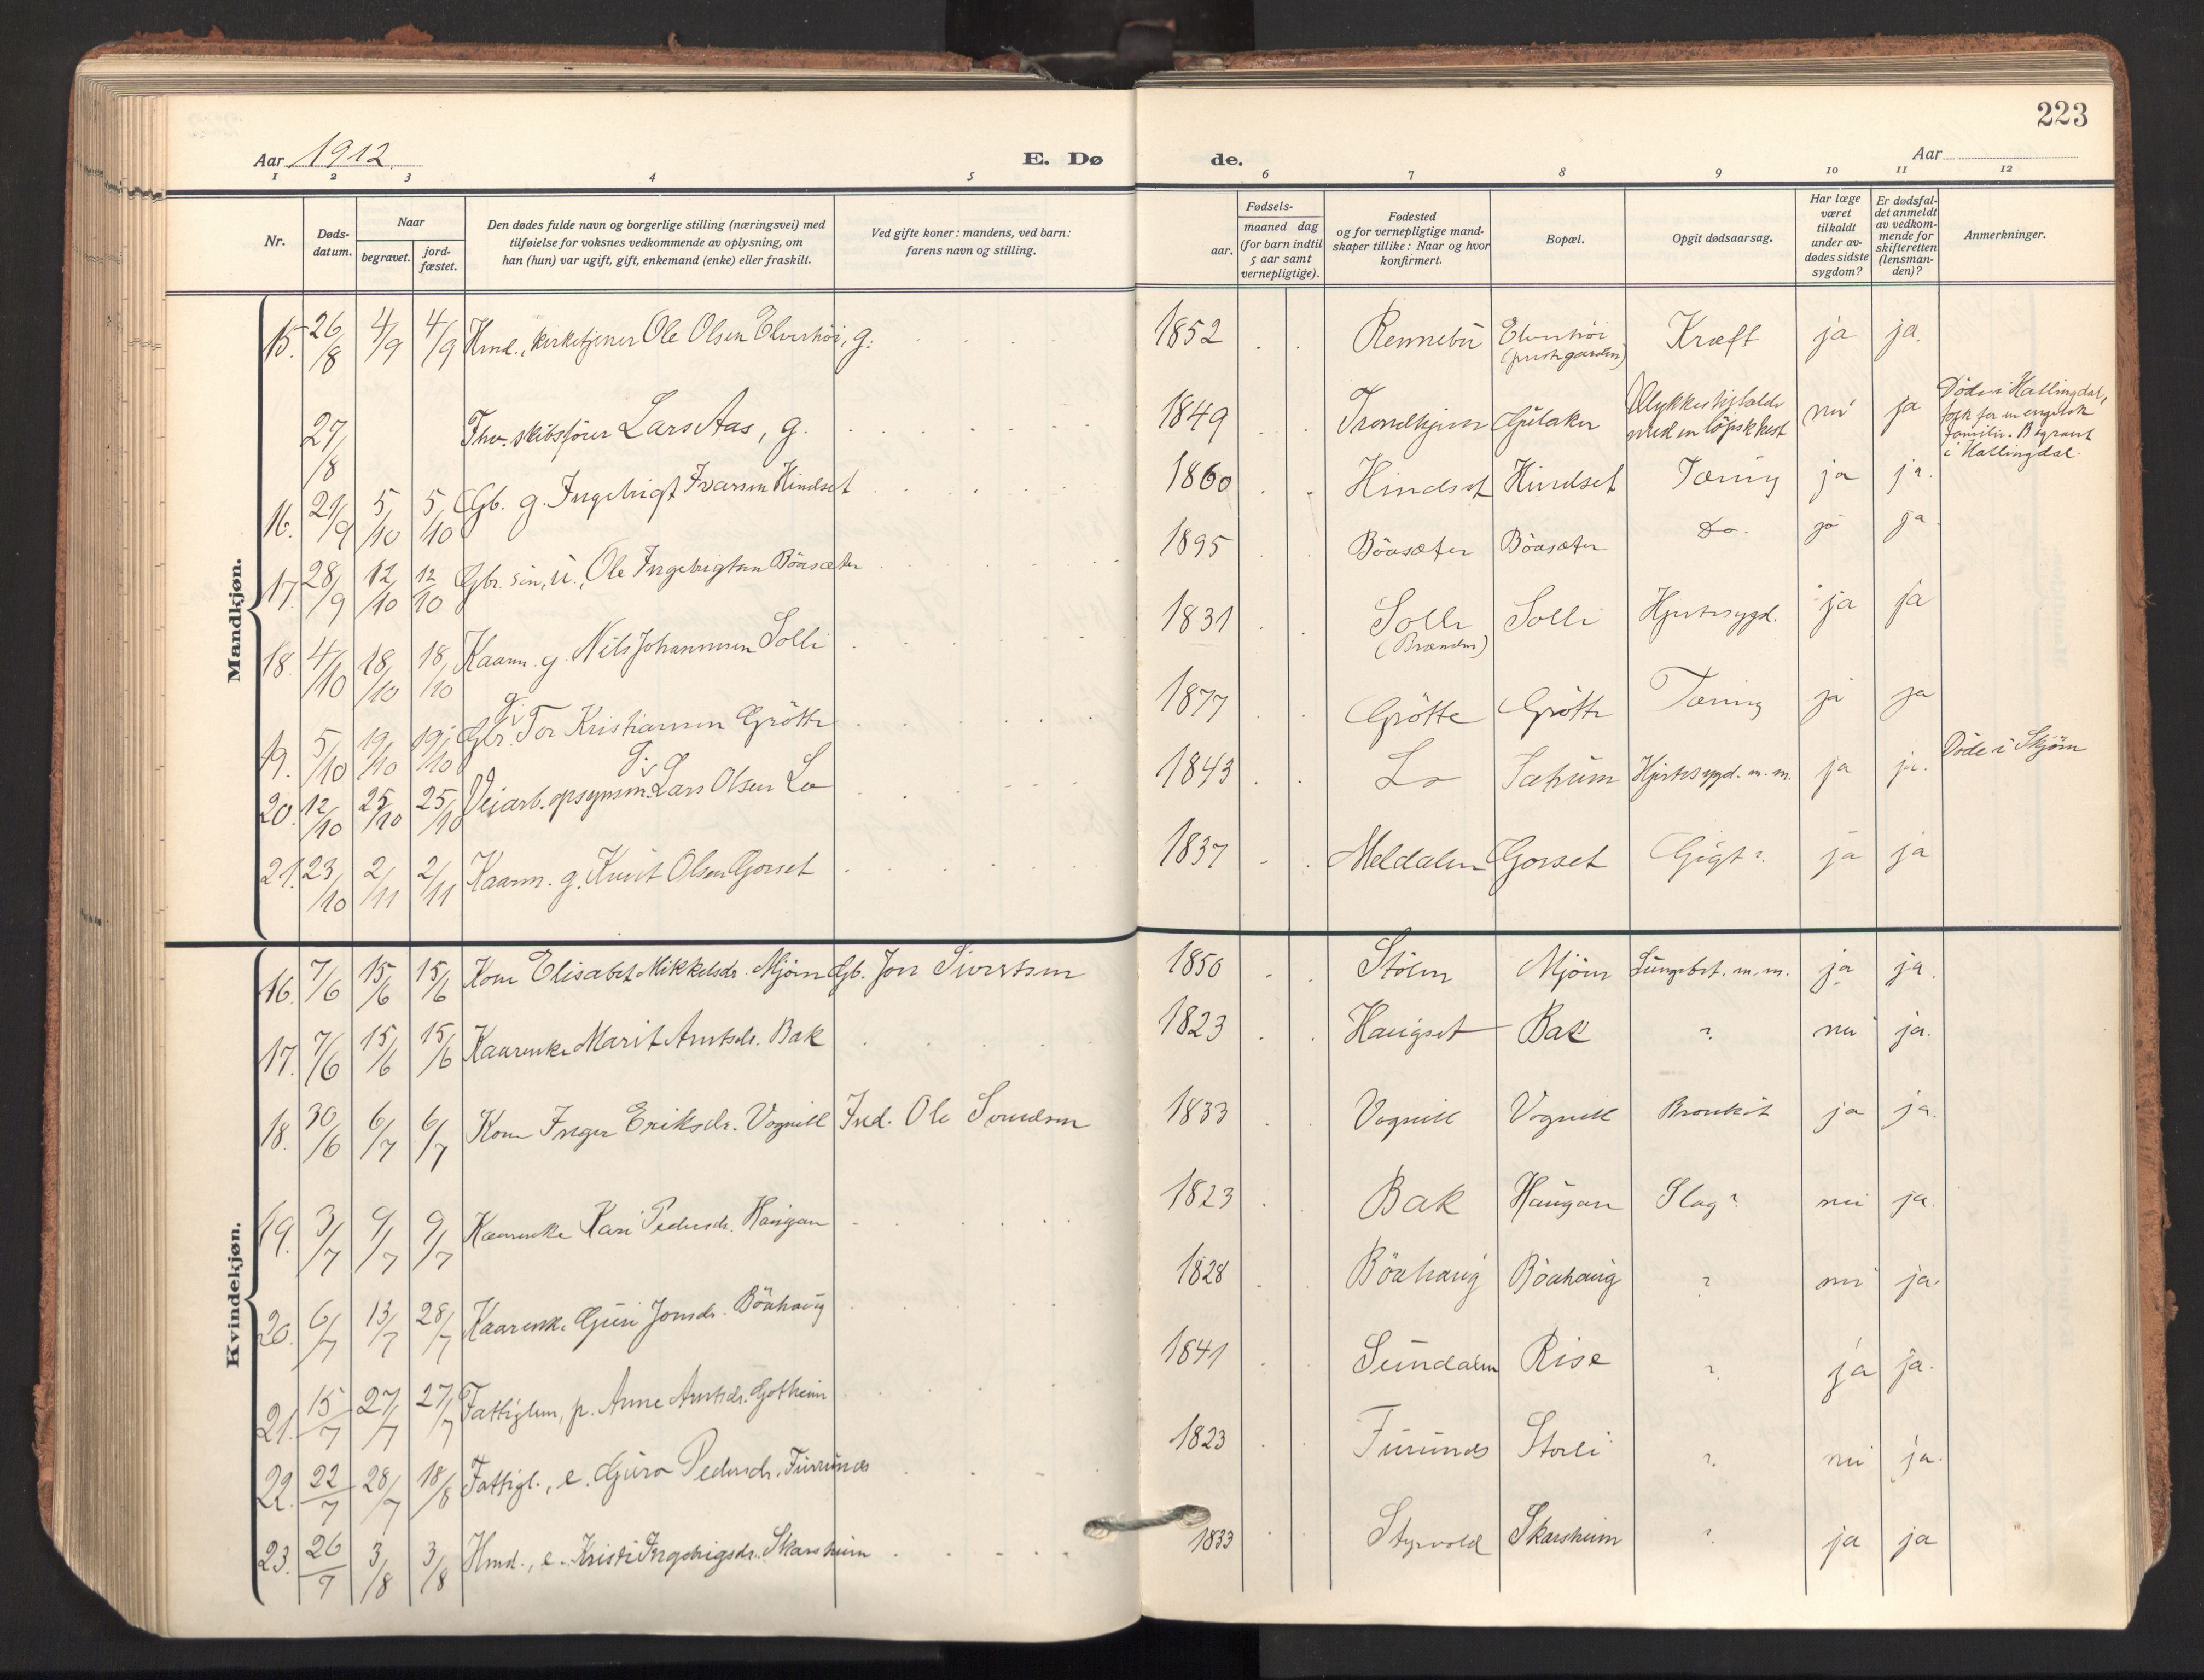 223
Aar 1912
E. Dø
de.
Aar
1 2 3 4 5 6 7 8 9 10 11 12
Nr.
Døds-
datum.
Naar
begravet.
jord-
fæstet.
Den dødes fulde navn og borgerlige stilling (næringsvei) med
tilføielse for voksnes vedkommende av oplysning, om
han (hun) var ugift, gift, enkemand (enke) eller fraskilt.
Ved gifte koner: mandens, ved barn:
farens navn og stilling.
Fødsels-
aar.
maaned dag
(for barn indtil
5 aar samt
vernepligtige).
Fødested
og for vernepligtige mand-
skaper tillike: Naar og hvor
konfirmert.
Bopæl.
Opgit dødsaarsag.
Har læge
været
tilkaldt
under av-
dødes sidste
sygdom?
Er dødsfal-
det anmeldt
av vedkom-
mende for
skifteretten
(lensman-
den)?
Anmerkninger.
Mandkjøn.
15. 26/8 4/9 4/9 Hmd., kirketjener Ole Olsen Elverhöi, g. 1852 Rennebu Elverhöi (prestgarden) Kræft ja ja.
27/8 skibsfører Lars Aas, g. 1849 Trondhjem Gulaker Ulykkestilfælde med en löpsk hest nei ja Döde i Hallingdal,
folk for en engelsk
familie. Begravet
i Hallingdal.
16. 21/9 5/10 5/10 Gb. g. Ingebrigt Ivarsen Hindset 1860 Hindset Hindset Tæring ja ja.
17. 28/9 12/10 12/10 Gbr. sön, u., Ole Ingebrigtsen Böasæter 1895 Böasæter Böasæter Do. ja ja.
18. 4/10 18/10 18/10 Kaarm. g. Nils Johannesen Solli 1831 Solli (Brænden) Solli Hjertesygd. ja ja
19. 5/10 19/10 19/10 Gbr. g. Tor Kristiansen Grötte 1877 Grötte Grötte Tæring ja ja
20. 12/10 25/10 25/10 Veiarb. opsynsm. g. Lars Olsen Lo 1843 Lo Sætrum Hjertesygd. m. m. ja ja. Döde i Stjörn
21. 23/10 2/11 2/11 Kaarm. g. Knut Olsen Gorset 1837 Meldalen Gorset Gigt? ja ja
Kvindekjøn.
16. 7/6 15/6 15/6 Kone Elisabet Mikkelsdr. Mjöen Gb. Jon Sivertsen 1850 Stölen Mjöen Lungebet. m. m. ja ja.
17. 7/6 15/6 15/6 Kaarenke Marit Arntsdr. Bak 1823 Haugset Bak ? nei ja.
18. 30/6 6/7 6/7 Kone Inger Eriksdr. Vognill Ind. Ole Svendsen 1833 Vognill Vognill Bronkit ja ja.
19. 3/7 9/7 9/7 Kaarenke Kari Pedersdr. Haugan 1823 Bak Haugan Slag? nei ja.
20. 6/7 13/7 28/7 Kaarenke Guri Jonsdr. Böahaug 1828 Böahaug Böahaug ? nei ja.
21. 15/7 27/7 27/7 Fattiglem, p. Anne Arntsdr. Gotheim 1841 Sundalen Rise ? ja ja.
22. 22/7 28/7 18/8 Fattigl., e. Guro Pedersdr. Furunes 1823 Furunes Storli ? nei ja.
23. 26/7 3/8 3/8 Hmd., e. Kristi Ingebrigsdr. Skarsheim 1833 Styrvold Skarsheim ? ja ja